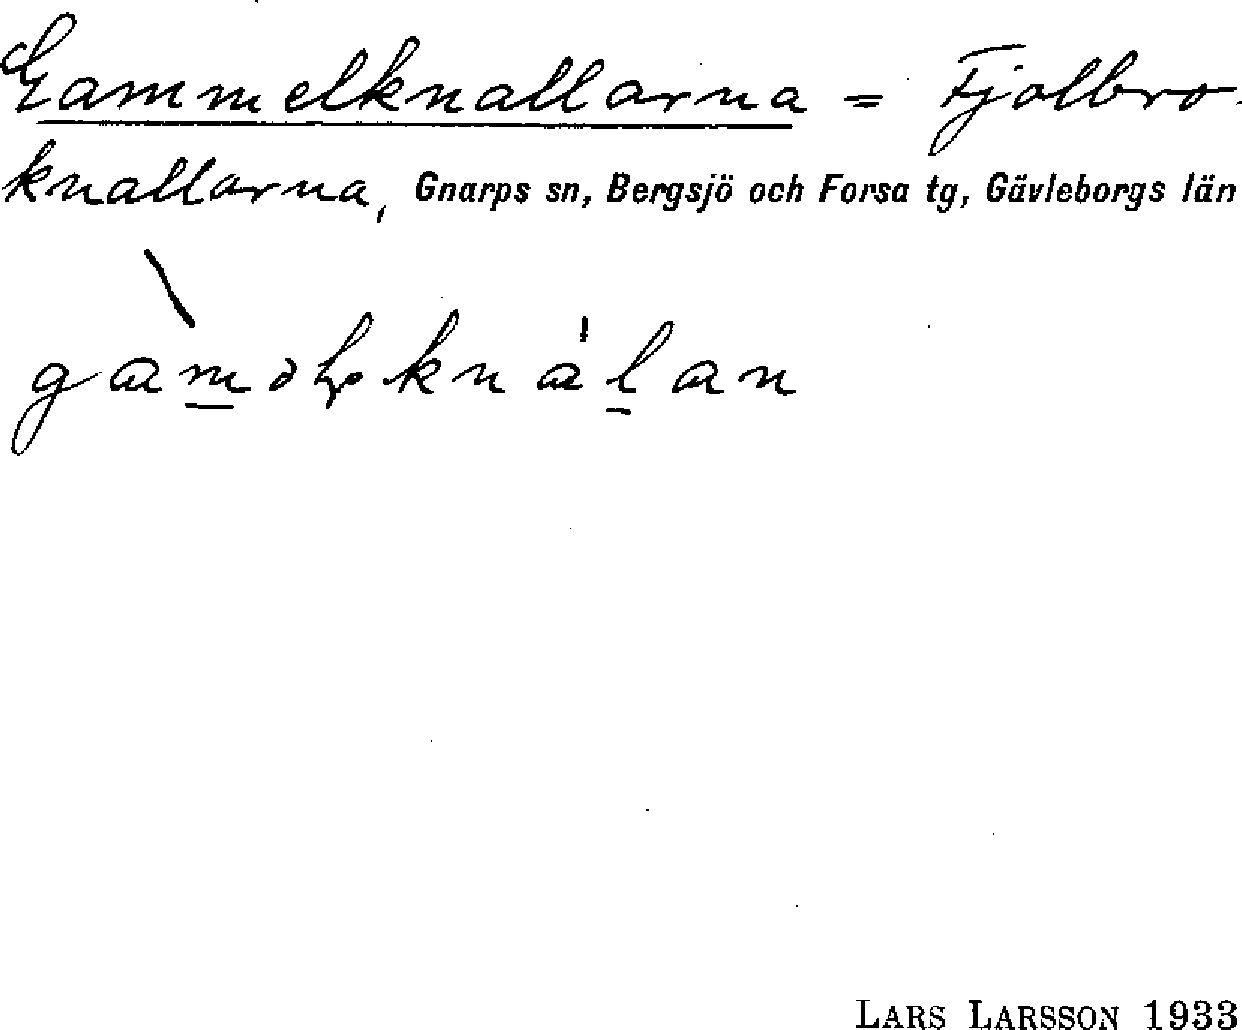 Gammelknallarna = Fjolbro-
knallarna, Gnarps sn, Bergsjö och Forsa tg, Gävleborgs län
LARS LARSSON 1933